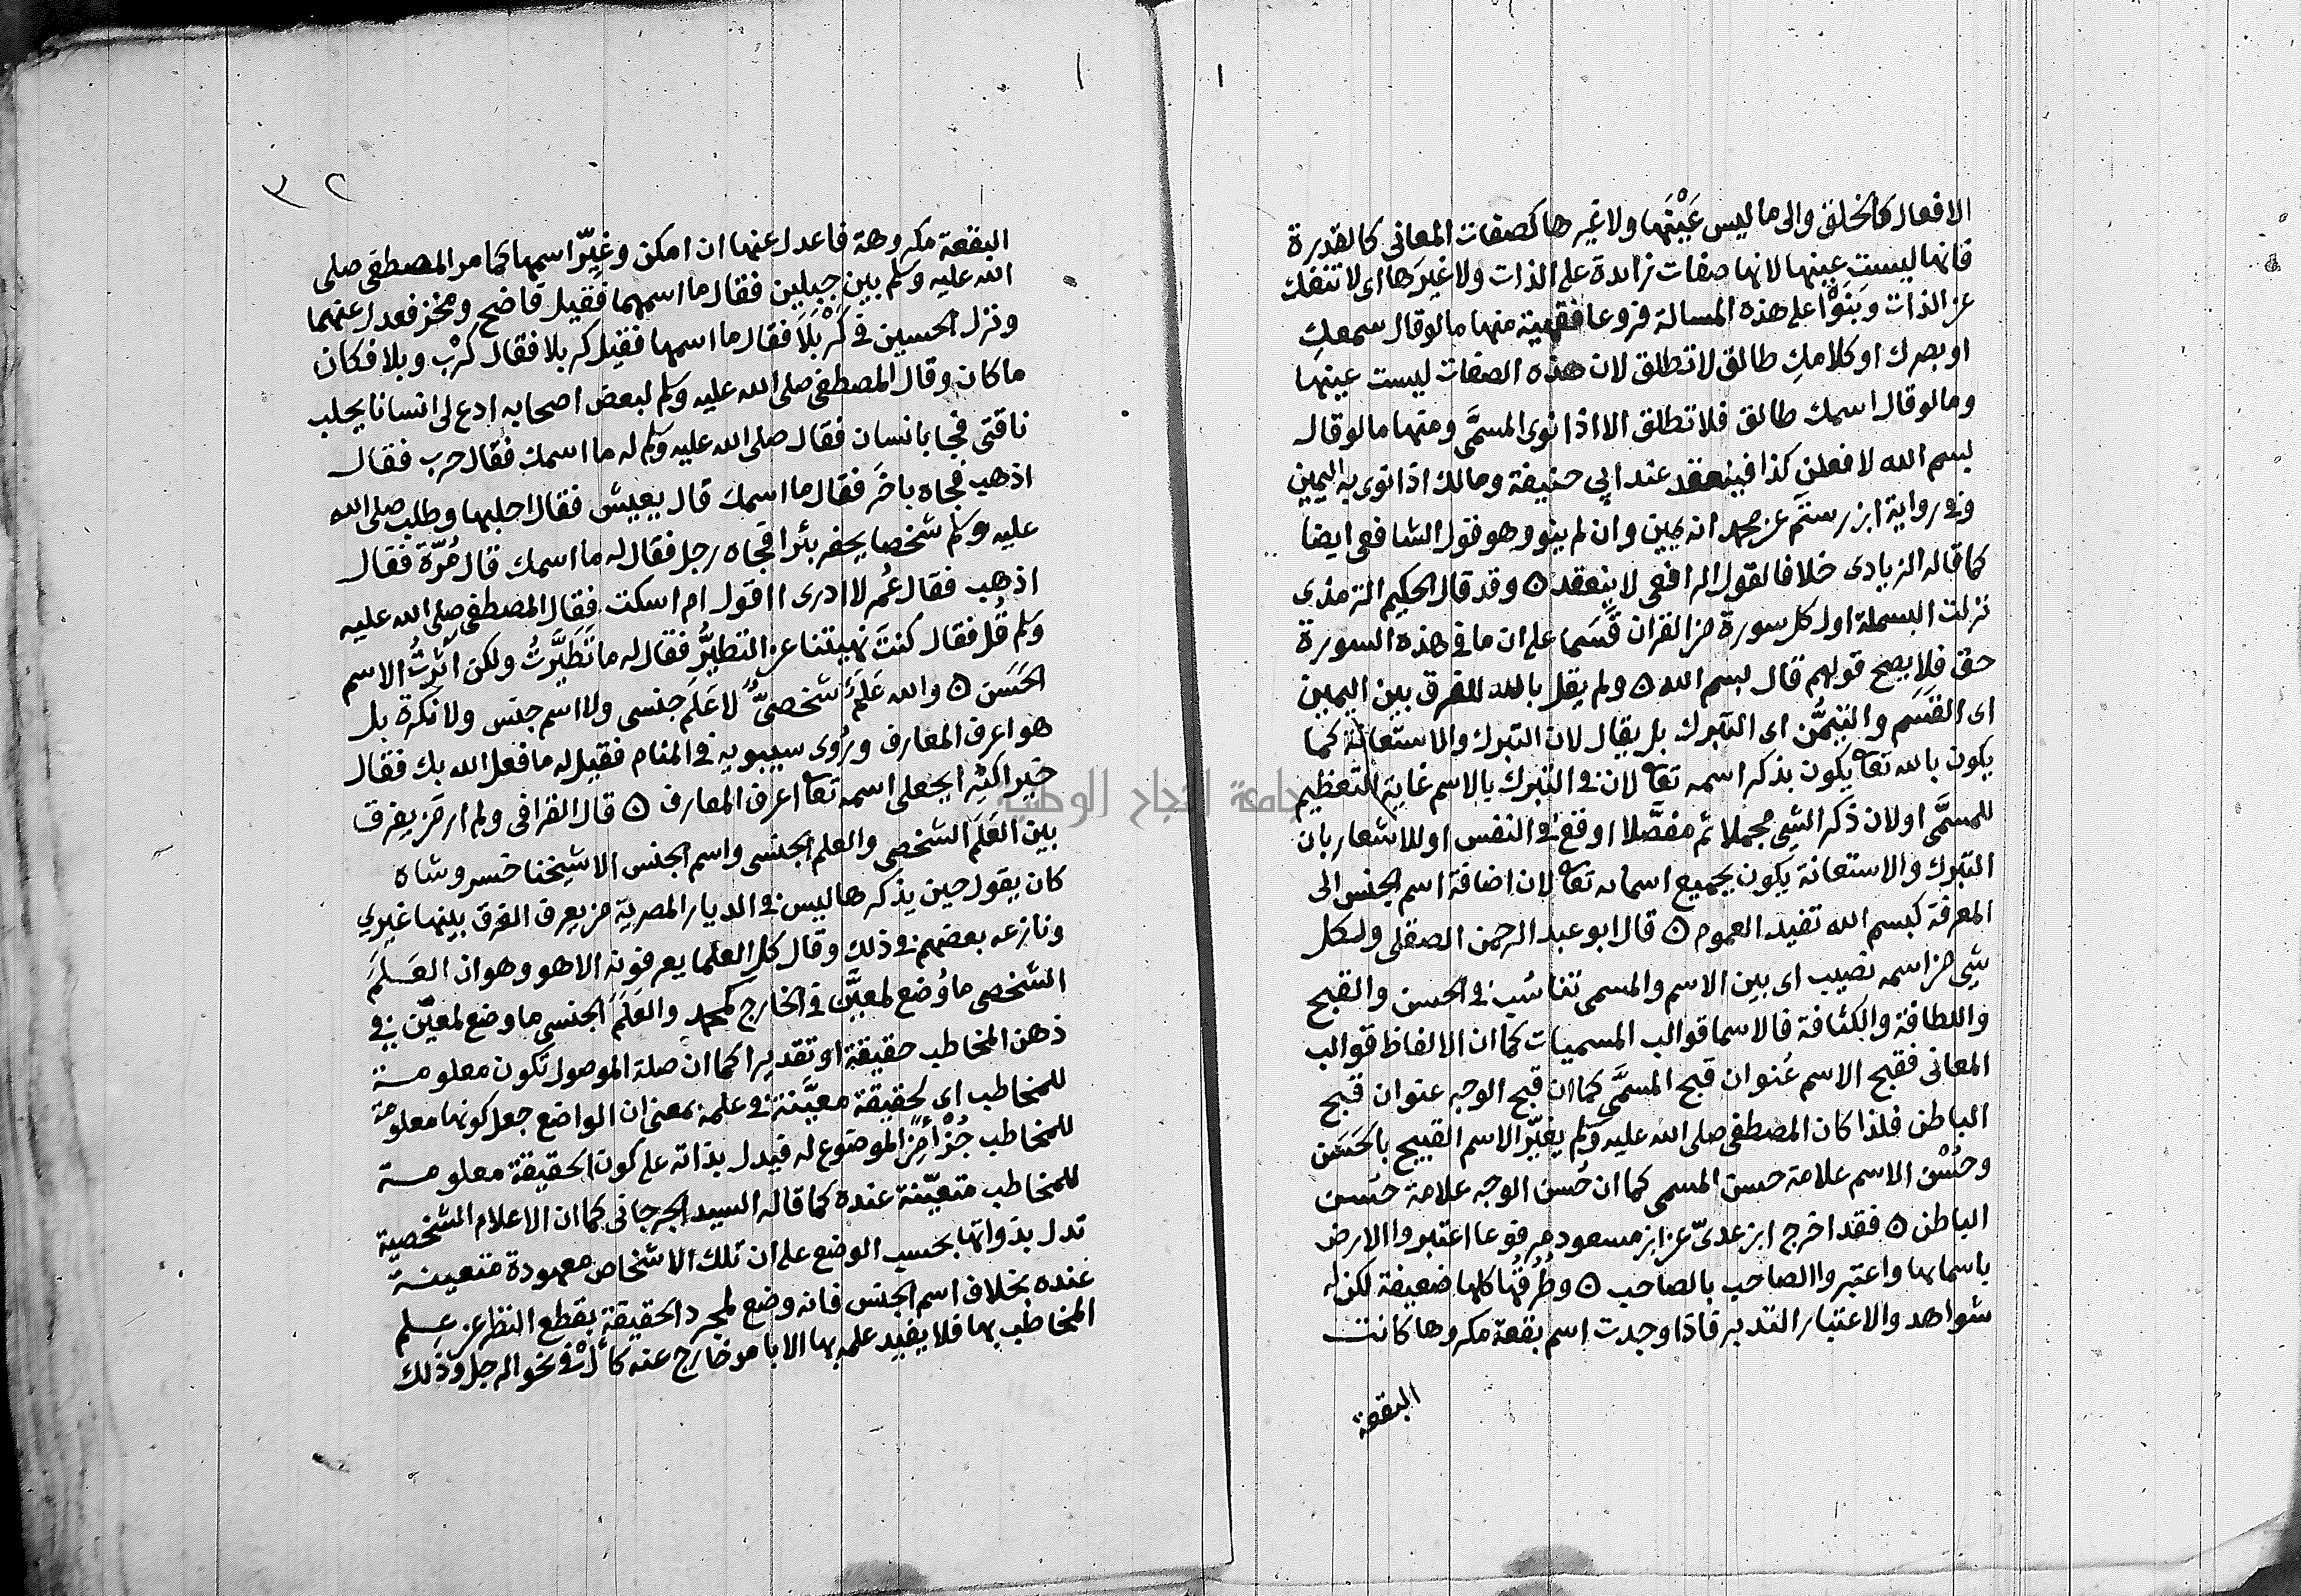 الافعال كالخلق والى ما ليس عَيْنَها ولا غيرها كصفات المعانى كالقدرة
فانها ليست عينها لانها صفات زائدة على الذات ولا غيرَها اى لا تنفك
عن الذات وبَنَوْا على هذه المسالة فروعا فقهية منها ما لو قال سمعكِ
او بصرك او كلامكِ طالق لا تطلق لان هذه الصفات ليست عينها
وما لو قال اسمك طالق فلا تطلق الا اذا نوى المسمَّى ومنها ما لو قال
بسم الله لافعلن كذا فينعقد عند ابى حنيفة ومالك اذا نوى به اليمين
وفى رواية ابن رستَم عن محمد انه يمين وان لم ينو وهو قول الشافعى ايضا
كما قاله الزيادى خلافا لقول الرافعى لا ينعقد ٥ وقد قال الحكيم الترمذى
نزلت البسملة اول كل سورة من القران قَسَما على ان ما فى هذه السورة
حق فلا يصح قولهم قال بسم الله ٥ ولم يقل بالله للفرق بين اليمين
اى القَسَم والتيمُّن اى التبرك بل يقال لان التبرك والاستعانة كما
يكون بالله تعا يكون بذكر اسمه تعا لان فى التبرك بالاسم غاية التعظيم
للمسمَّى او لان ذكر الشى مجملا ثم مفصَّلا اوقع فى النفس او للاشعار بان
التبرك والاستعانة يكون بجميع اسمائه تعا لان اضافة اسم الجنس الى
المعرفة كبسم الله تفيد العموم ٥ قال ابو عبد الرحمن الصقلى ولكل
شى من اسمه نصيب اى بين الاسم والمسمى تناسُب فى الحسن والقبح
واللطافة والكثافة فالاسما قوالب المسميات كما ان الالفاظ قوالب
المعانى فقبح الاسم عُنوان قبح المسمَّى كما ان قبح الوجه عنوان قبح
الباطن فلذا كان المصطفى صلى الله عليه وسلم يغيّر الاسم القبيح بالحَسَن
وحُسْن الاسم علامة حسن المسمى كما ان حُسن الوجه علامة حسن
الباطن ٥ فقد اخرج ابن عدىّ عن ابن مسعود مرفوعا اعتبروا الارض
باسمائها واعتبروا الصاحب بالصاحب ٥ وطُرُقُها كلها ضعيفة لكن له
شواهد والاعتبار التدبر فاذا وجدت اسم بقعة مكروها كانت
البقعة
١
١
٣٢
البقعة مكروهة فاعدل عنها ان امكن وغيِّر اسمها كما مر المصطفى صلى
الله عليه وسلم بين جبلين فقال ما اسمهما فقيل فاضح ومخز فعدل عنهما
ونزل الحسين فى كَرْبَلَا فقال ما اسمها فقيل كربلا فقال كرْب وبلا فكان
ما كان وقال المصطفى صلى الله عليه وسلم لبعض اصحابه ادع لى انسانا يحلب
ناقتى فجا بانسان فقال صلى الله عليه وسلم له ما اسمك فقال حرب فقال
اذهب فجاه باخَر فقال ما اسمك قال يعيش فقال احلبها وطلب صلى الله
عليه وسلم شخصا يحفر بئرا فجاه رجل فقال له ما اسمك قال مُرّة فقال
اذهب فقال عُمر لا ادرى ااقول ام اسكت فقال المصطفى صلى الله عليه
وسلم قُل فقال كنتَ نهيتنا عن التطيُّر فقال له ما تَطَيَّرتُ ولكن اثَرتُ الاسم
الحَسَن ٥ والله عَلَمٌ شخصىٌّ لا عَلَم جنسى ولا اسم جنس ولا نكرة بل
هو اعرف المعارف ورُوى سيبويه فى المنام فقيل له ما فعل الله بك فقال
خيرا كثيرا بجعلى اسمه تعا اعرف المعارف ٥ قال القرافى ولم ار من يفرق
بين العَلَم الشخصى والعلم الجنسى واسم الجنس الا شيخنا خسروشاه
كان يقول حين يذكرها ليس فى الديار المصرية من يعرف الفرق بينها غيري
ونازعه بعضهم فى ذلك وقال كل العلما يعرفونه الا هو وهو ان العَلَمَ
الشخصى ما وُضع لمعيَّن فى الخارج كمحمد والعَلَمَ الجنسى ما وضع لمعيّن فى
ذهن المخاطب حقيقة او تقديرا كما ان صلة الموصول تكون معلومة
للمخاطب اى لحقيقة معيَّنة فى علمه بمعنى ان الواضع جعل كونها معلومة
للمخاطب جُزْأً من الموضوع له فيدل بذاته على كون الحقيقة معلومة
للمخاطب متعيّنة عنده كما قاله السيد الجرجانى كما ان الاعلام الشخصية
تدل بذواتها بحسب الوضع على ان تلك الاشخاص معهودة متعينة
عنده بخلاف اسم الجنس فانه وضع لمجرد الحقيقة بقطع النظر عن عِلم
المخاطب بها فلا يفيد علمه بها الا بامر خارج عنه كأَلْ فى نحو الرجل وذلك
جامعة النجاح الوطنية